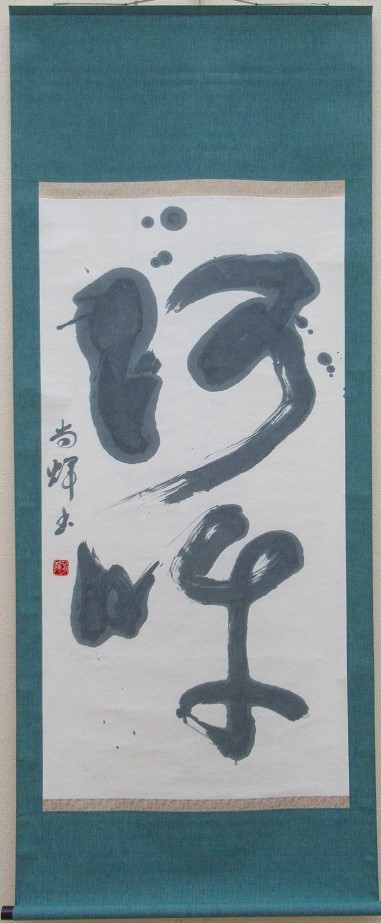 阿吽
尚輝书